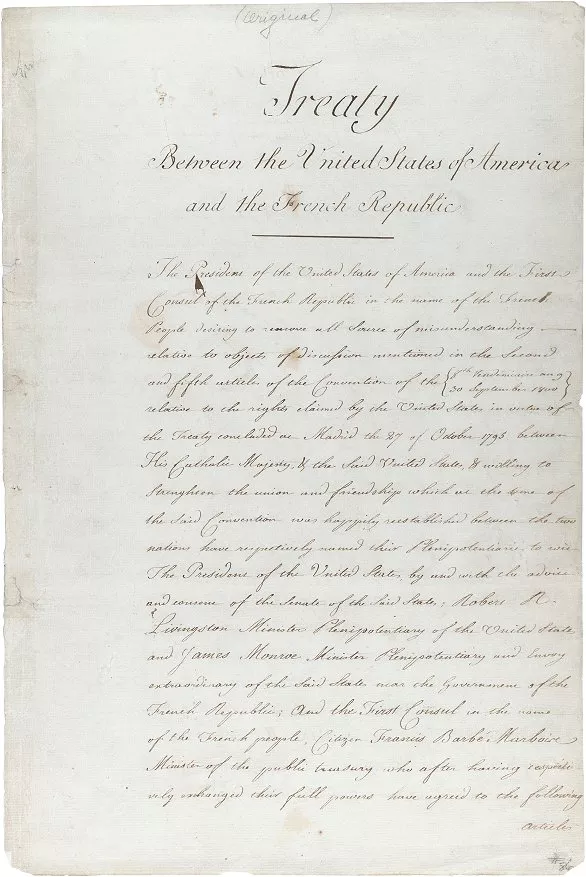 (Original)
Treaty
Between the United States of America
and the French Republic
The President of the United States of America and the First
Consul of the French Republic in the name of the French
People desiring to remove all Source of misunderstanding
relative to objects of discussion mentioned in the Second
and fifth articles of the Convention of the
8th Vendémiaire an 9
30 September 1800
relative to the rights claimed by the United States in virtue of
the Treaty concluded at Madrid the 27 of October 1795 between
His Catholic Majesty, & the Said United States, & willing to
Strengthen the union and friendship which at the time of
the Said Convention was happily reestablished between the two
nations have respectively named their Plenipotentiaries to wit
The President of the United States, by and with the advice
and consent of the Senate of the Said States; Robert R.
Livingston Minister Plenipotentiary of the United States
and James Monroe Minister Plenipotentiary and Envoy
extraordinary of the Said States near the Government of the
French Republic; And the First Consul in the name
of the French people, Citizen Francis Barbé Marbois
Minister of the public treasury who after having respecti-
vely exchanged their full powers have agreed to the following
articles